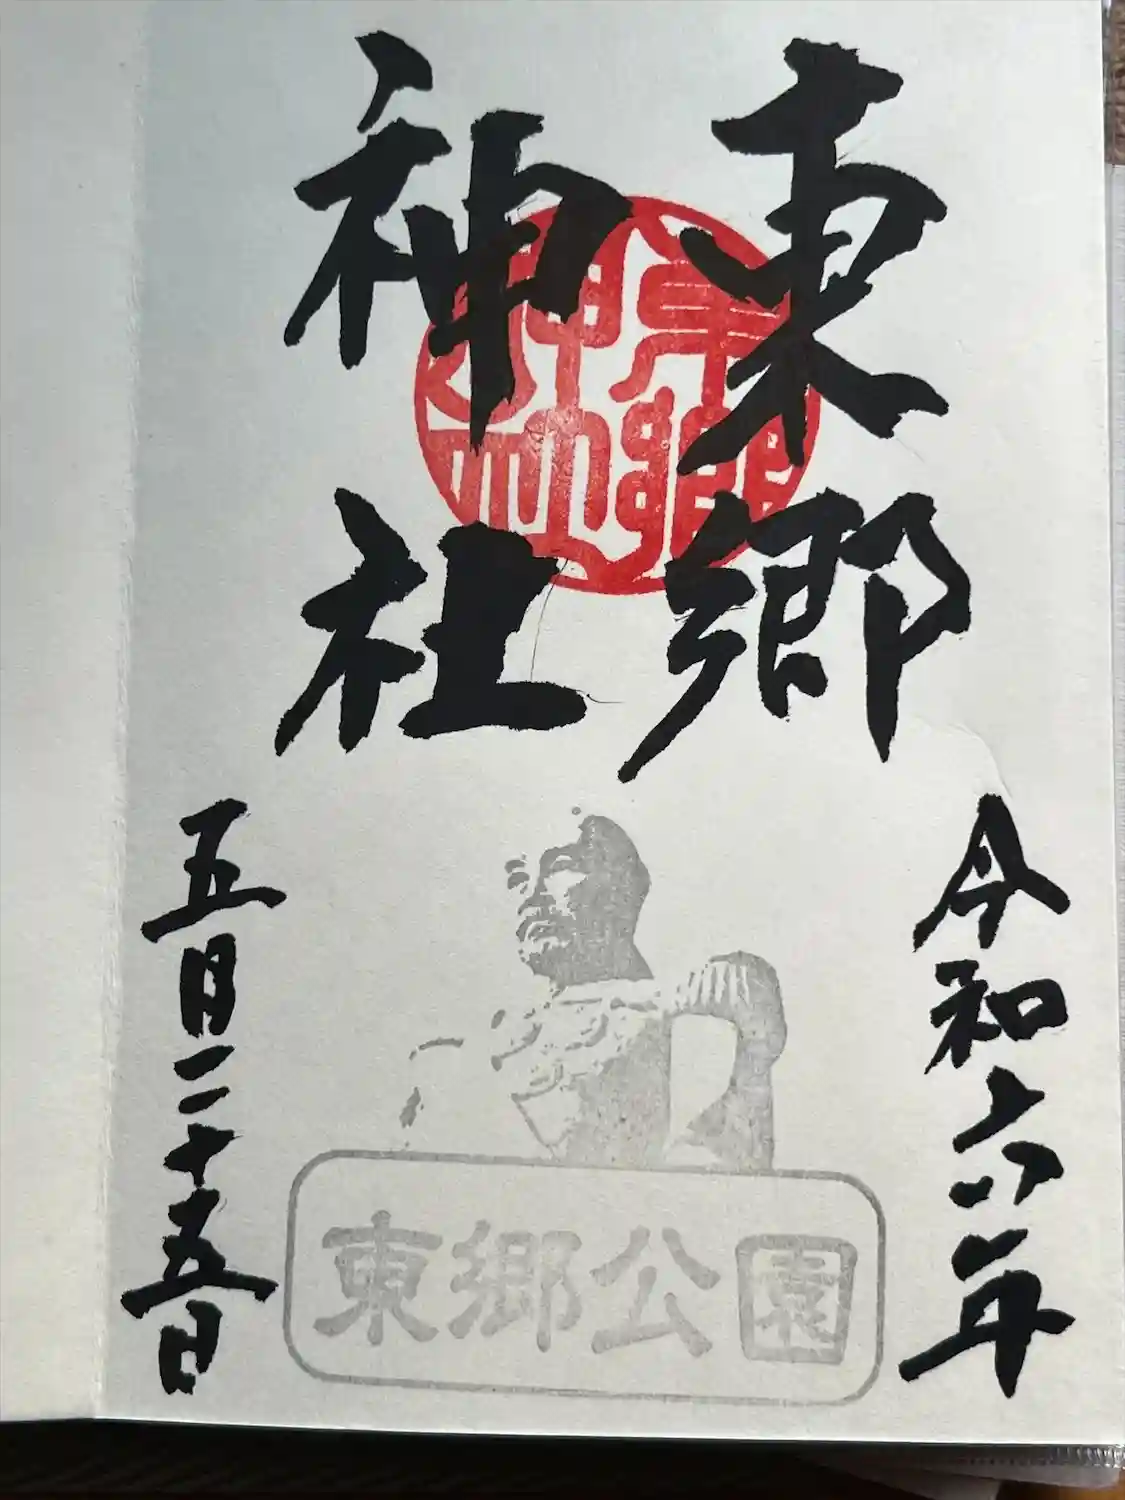 東郷
神社
令和六年
五月二十五日
東郷公園
東郷
神社